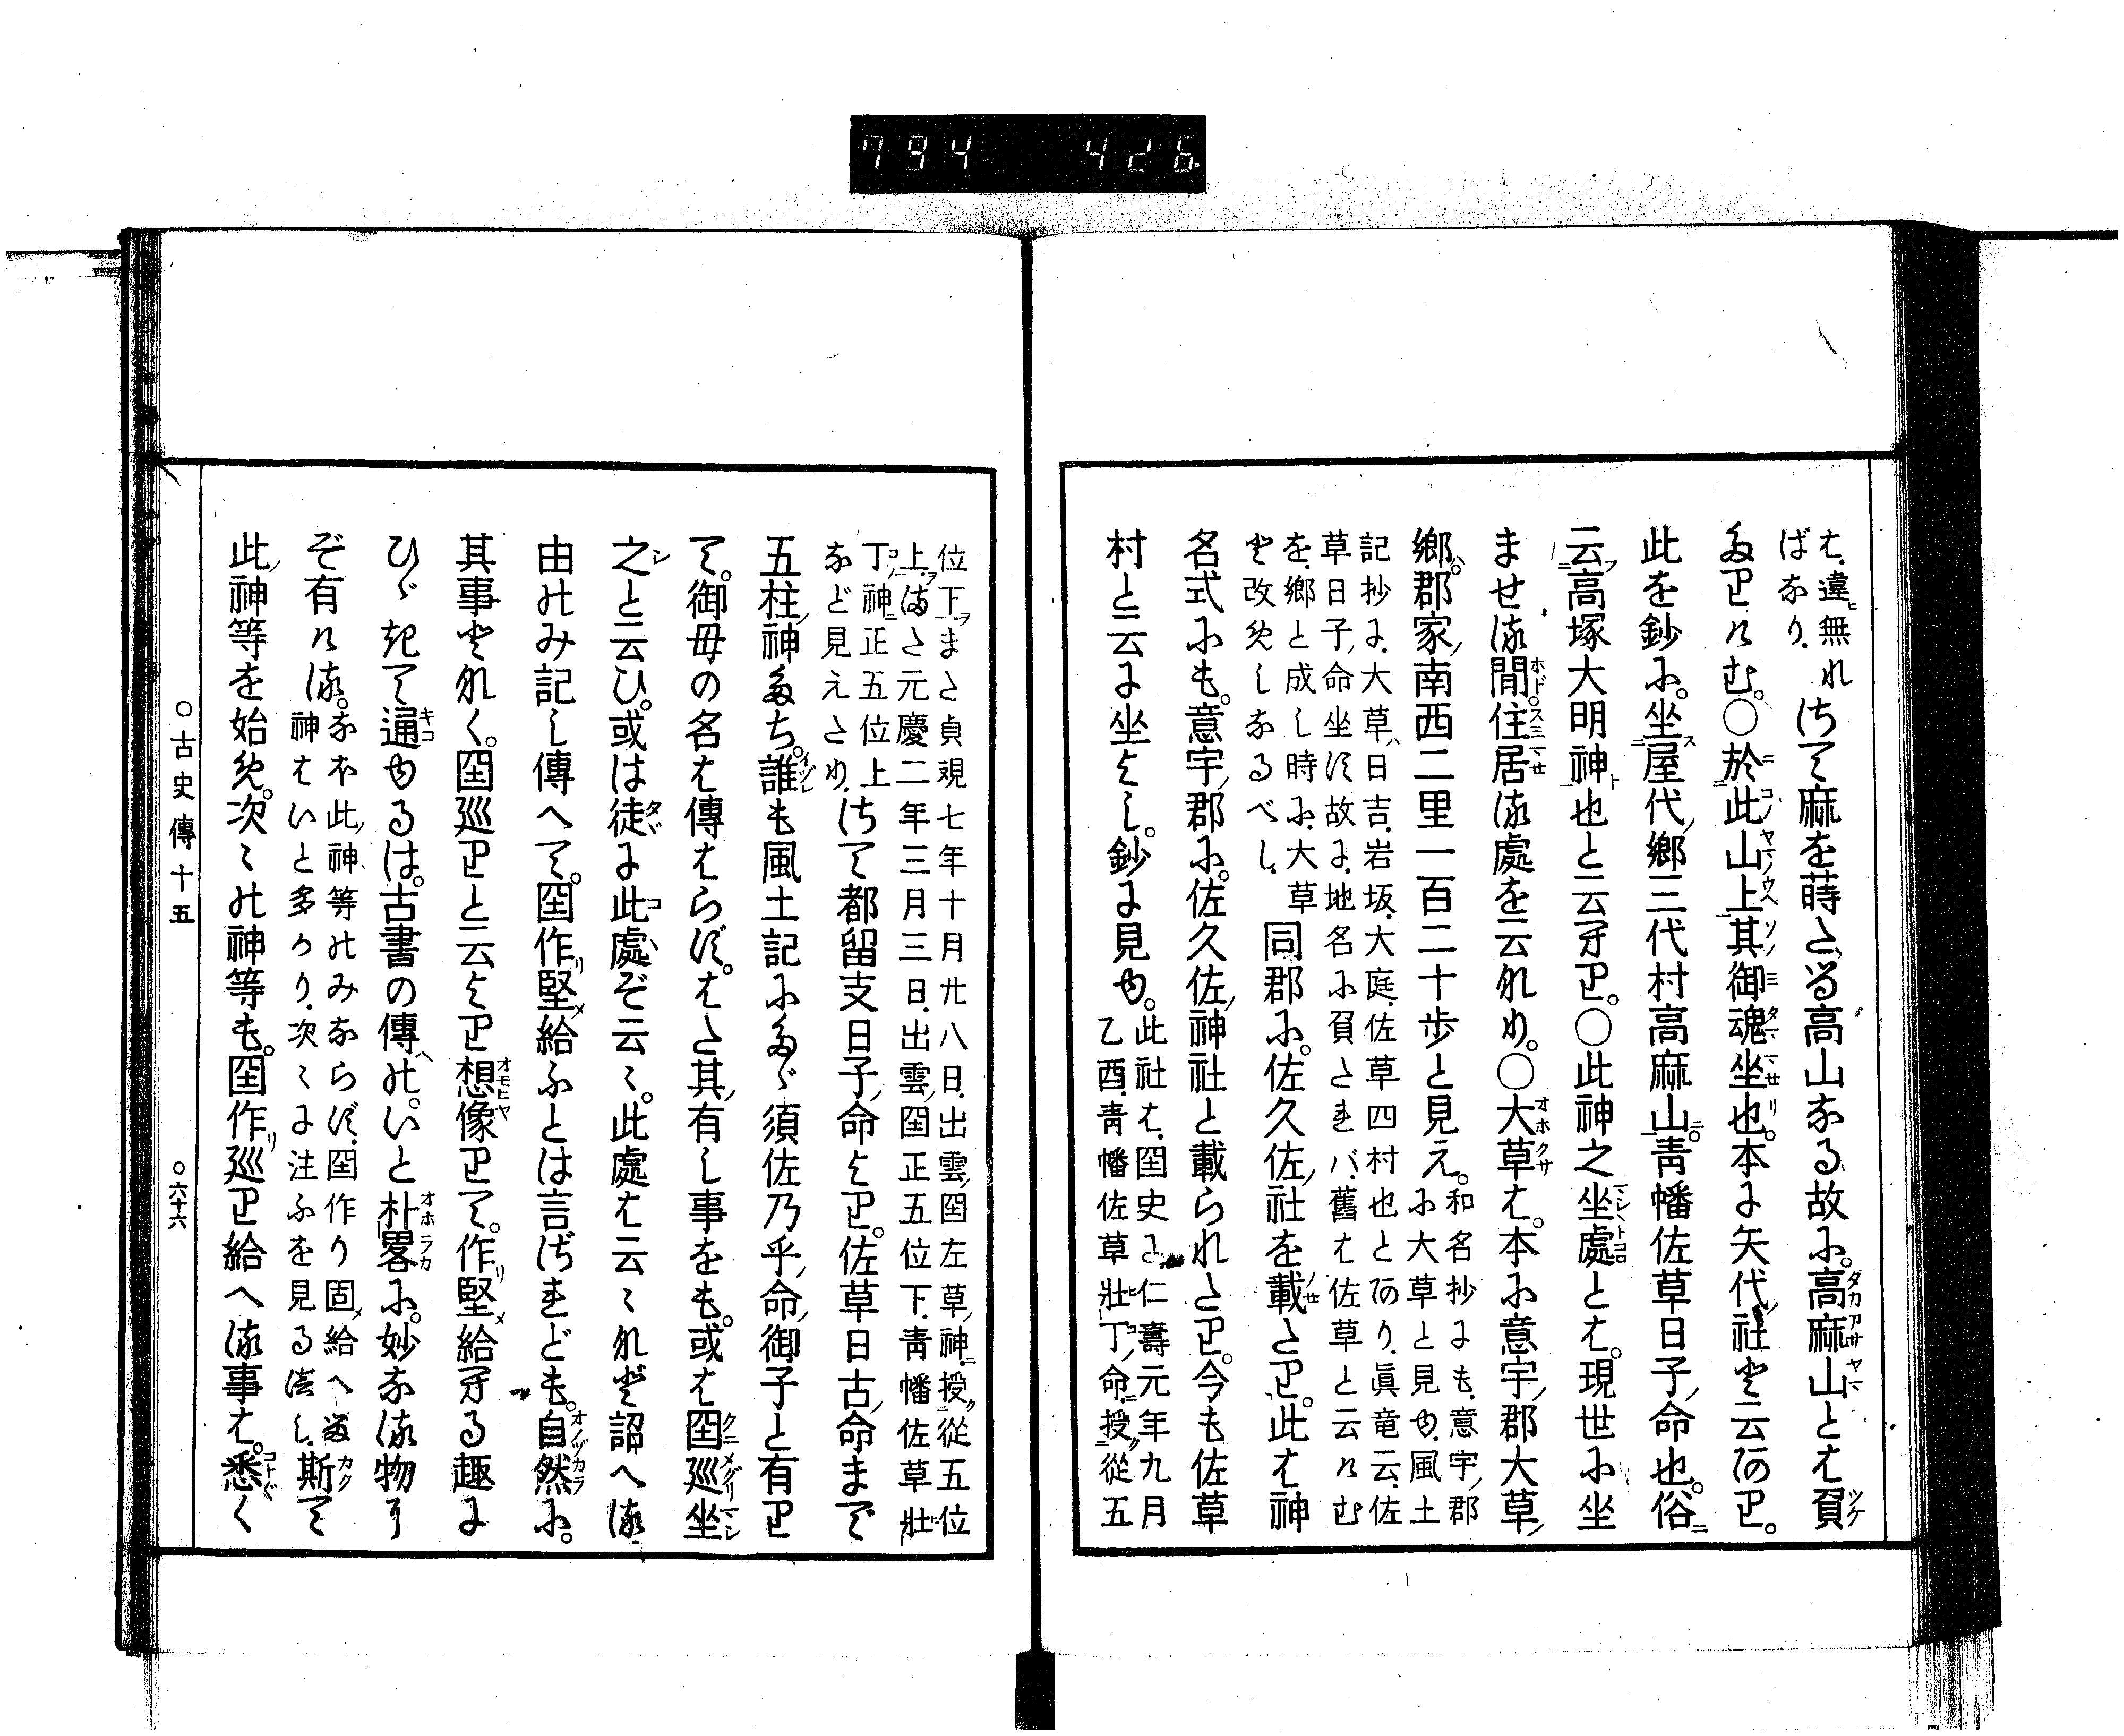 794 426
は、違ヒ無れ
ばなり、
さて麻を蒔たる高山なる故に。高麻山とは負
たりけむ。〇於此山上其御魂坐也。本に矢代社と云あり。
此を鈔に。坐屋代ノ郷三代村高麻山。青幡佐草日子ノ命也。俗ニ
云高塚大明神也と云へり。〇此神之坐處とは。現世に坐
ませる間。住居る處を云なり。〇大草は。本に意宇ノ郡大草ノ
郷。郡家ノ南西二里一百二十歩と見え。
和名抄にも、意宇ノ郡
に大草と見ゆ、風土
記抄に、大草ハ日吉、岩坂、大庭、佐草四村也とあり、眞竜云、佐
草日子ノ命坐す故に、地名に負たれバ、舊は佐草と云けむ
を、郷と成し時に、大草
と改めしなるべし、
同郡に。佐久佐ノ社を載たり。此は神
名式にも。意宇ノ郡に。佐久佐ノ神社と載られたり。今も佐草
村と云に坐よし。鈔に見ゆ。
此社は、国史に仁壽元年九月
乙酉、青幡佐草壯丁ノ命ニ授從五
位下、また貞観七年十月廿八日、出雲ノ国左草ノ神ニ授從五位
上、また元慶二年三月三日、出雲ノ国正五位下、青幡佐草壯
丁ノ神ニ正五位上
など見えたり、
さて都留支日子ノ命より。佐草日古ノ命まで
五柱ノ神たち。誰も風土記にたゞ須佐乃乎ノ命ノ御子と有り
て。御母の名は傳はらず。はた其ノ有し事をも。或は国巡坐
之と云ひ。或は徒に此處ぞ云々。此處は云々なと詔へる
由のみ記し傳へて。国作リ堅メ給ふとは言ざれども。自然に。
其事となく。国巡りと云より想像りて。作リ堅メ給へる趣に
ひゞきて通ゆるは。古書の傳ヘの。いと朴畧に。妙なる物に
ぞ有ける。
なほ此ノ神等のみならず、国作り固メ給へる
神はいと多かり、次々に注ふを見るべし、
斯て
此ノ神等を始め。次々の神等も。国作リ巡り給へる事は。悉く
〇古史傳十五
〇六十六